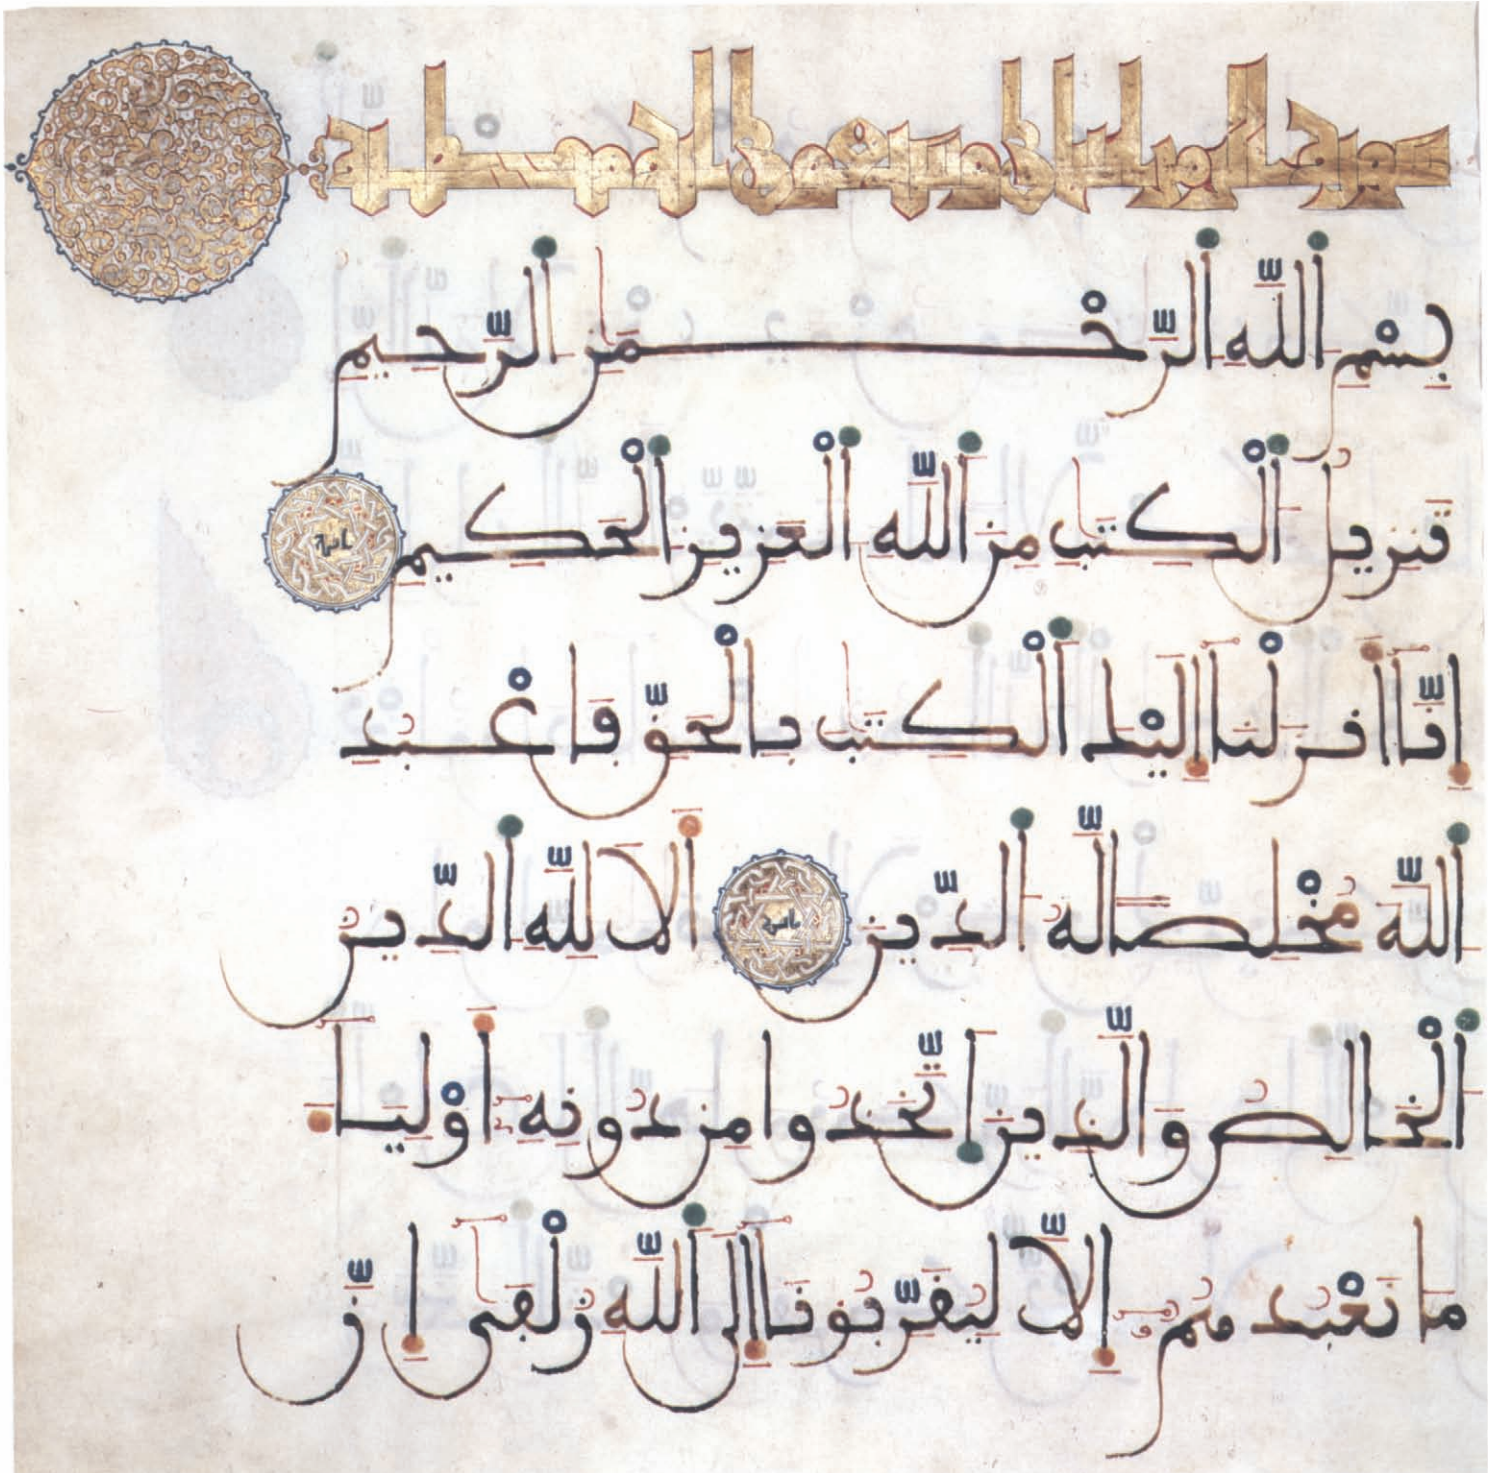 سورة الزمر وسبعون مكية
بِسْمِ اللَّهِ الرَّحْمَٰنِ الرَّحِيمِ
تَنزِيلُ الْكِتَٰبِ مِنَ اللَّهِ الْعَزِيزِ الْحَكِيمِ
إِنَّا أَنزَلْنَا إِلَيْكَ الْكِتَٰبَ بِالْحَقِّ فَاعْبُدِ
اللَّهَ مُخْلِصًا لَّهُ الدِّينَ أَلَا لِلَّهِ الدِّينُ
الْخَالِصُ وَالَّذِينَ اتَّخَذُوا مِن دُونِهِ أَوْلِيَاءَ
مَا نَعْبُدُهُمْ إِلَّا لِيُقَرِّبُونَا إِلَى اللَّهِ زُلْفَىٰ إِنَّ